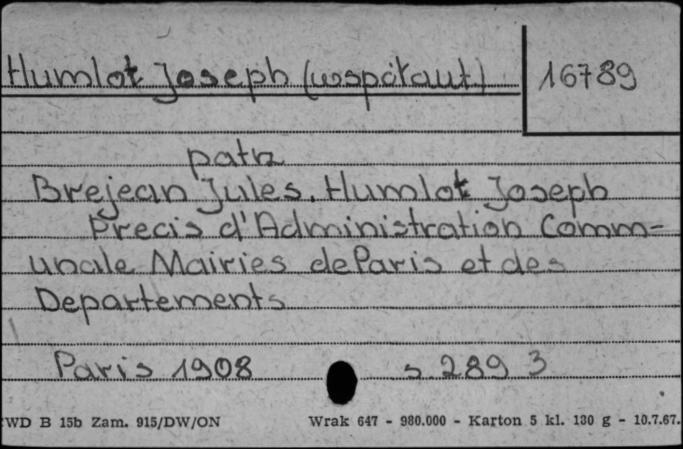 Humlot Joseph (współaut)
16789
patrz
Brejean Jules. Humlot Joseph
Precis d'Administration Comm-
unale Mairies de Paris et des
Departements
Paris 1908 s 289 3
WD B 15b Zam. 915/DW/ON Wrak 647 - 980.000 - Karton 5 kl. 180 g - 10.7.67.